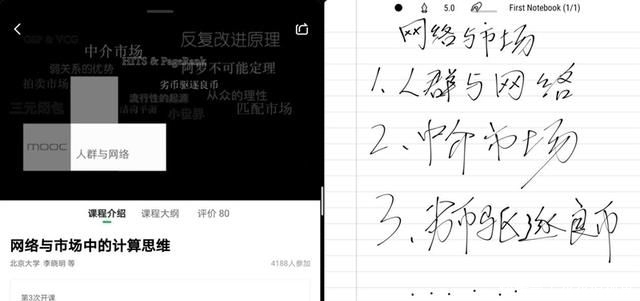 GSP & VCG
中介市场
反复改进原理
弱关系的优势
HITS & PageRank
阿罗不可能定理
拍卖市场
劣币驱逐良币
流行性的起源
从众的理性
三元闭包
小世界
匹配市场
mooc
人群与网络
课程介绍 课程大纲 评价 80
网络与市场中的计算思维
北京大学 李晓明 等
4188人参加
第3次开课
5.0 First Notebook (1/1)
网络与市场
1、人群与网络
2、中介市场
3、劣币驱逐良币
......